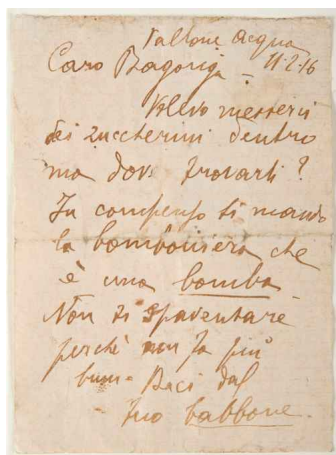 Vallone Acqua
11-2-16
Caro Bagonga -
Volevo metterci
dei zuccherini dentro
ma dove trovarli?
In compenso ti mando
la bomboniera che
è una bomba.
Non ti spaventare
perchè non fa più
bum - Baci dal
tuo babbone.